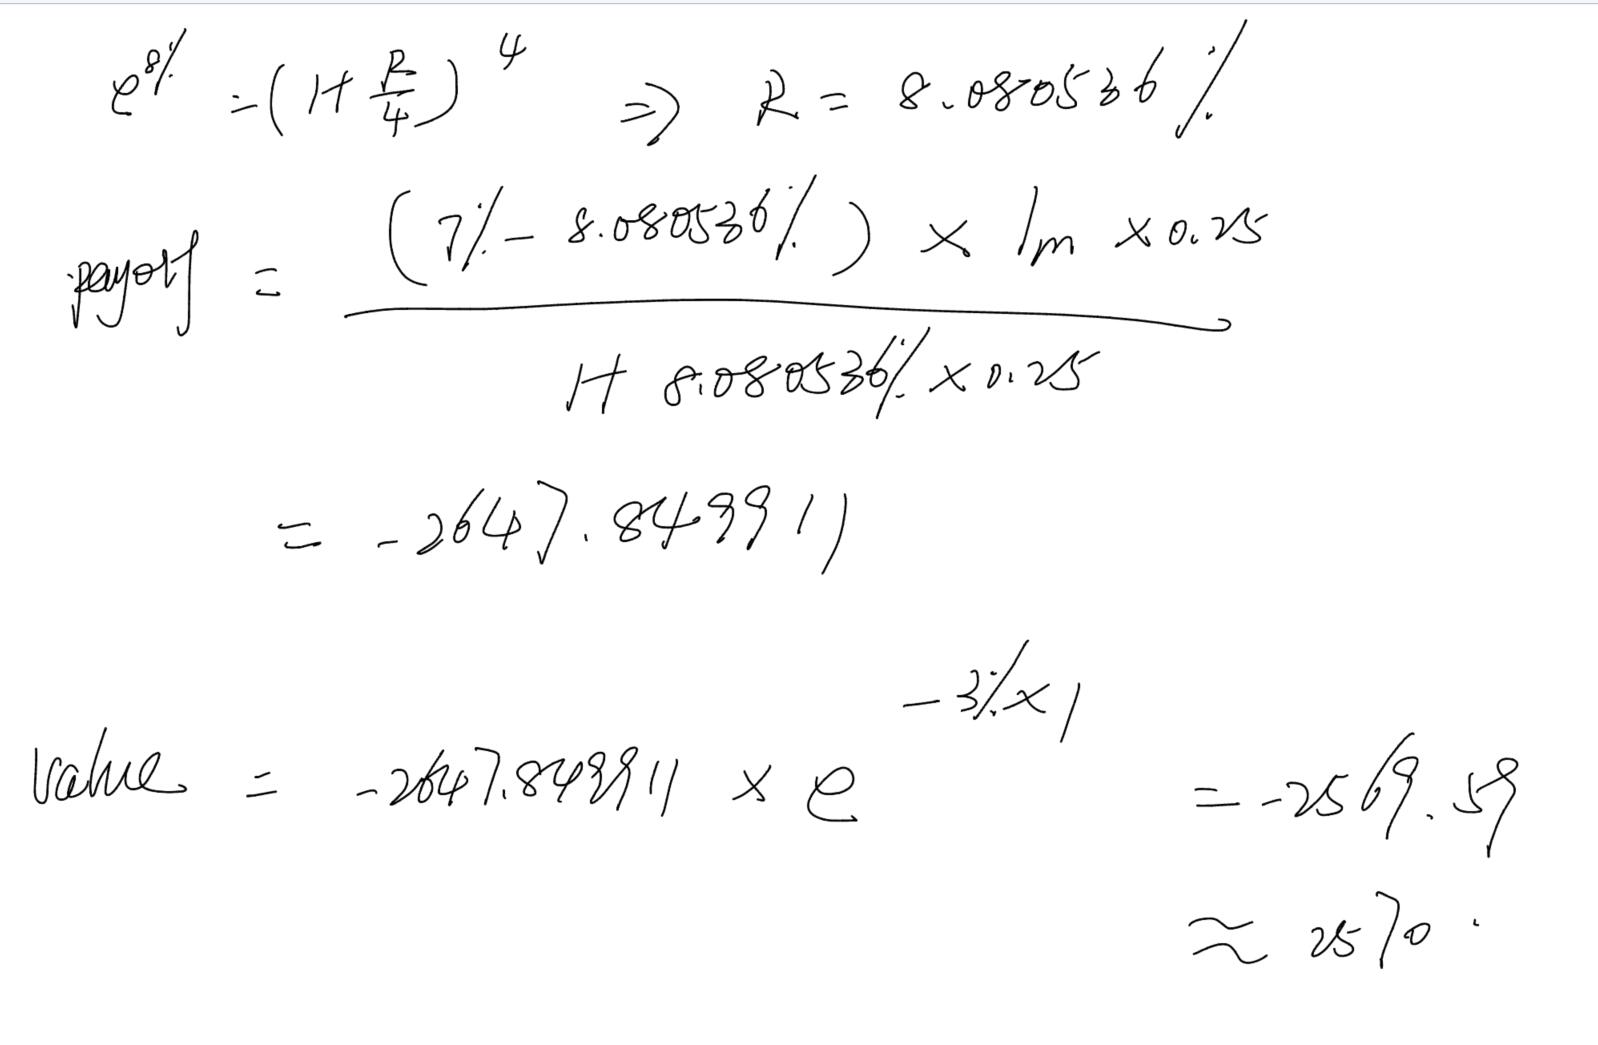 e^8% = (1+ R/4)^4 => R = 8.080536%
payoff = (7% - 8.080536%) × 1m × 0.25
1+ 8.080536% × 0.25
= -2647.849911
value = -2647.849911 × e^-3%×1 = -2569.59
≈ 2570.